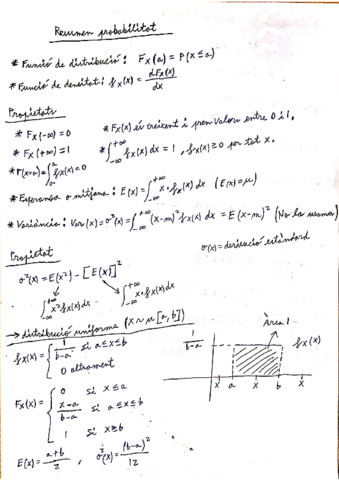 Resumen probabilitat
* Funció de distribució: Fx(a) = P(x≤a)
* Funció de densitat: fx(x) = dFx(x)/dx
Propietats
* Fx(-∞) = 0   * Fx(x) és creixent i pren valors entre 0 i 1.
* Fx(+∞) = 1   * ∫_{-∞}^{+∞} fx(x) dx = 1, fx(x) ≥ 0 per tot x.
* P(x=a) = ∫_a^a fx(x) = 0
* Esperança o mitjana: E(x) = ∫_{-∞}^{+∞} x·fx(x) dx (E(x) = μ)
* Variància: Var(x) = σ²(x) = ∫_{-∞}^{+∞} (x-m)² fx(x) dx = E(x-m)² (No la usamos)
σ(x) = desviació estàndard
Propietat
σ²(x) = E(x²) - [E(x)]²
∫_{-∞}^{+∞} x² fx(x) dx   ∫_{-∞}^{+∞} x·fx(x) dx
→ distribució uniforme (x ~ u [a, b])
fx(x) = { 1/(b-a) si a≤x≤b
0 altrament
Àrea 1
1/(b-a)   fx(x)
x a x b x
Fx(x) = { 0 si x≤a
(x-a)/(b-a) si a≤x≤b
1 si x≥b
E(x) = (a+b)/2 , σ²(x) = (b-a)²/12